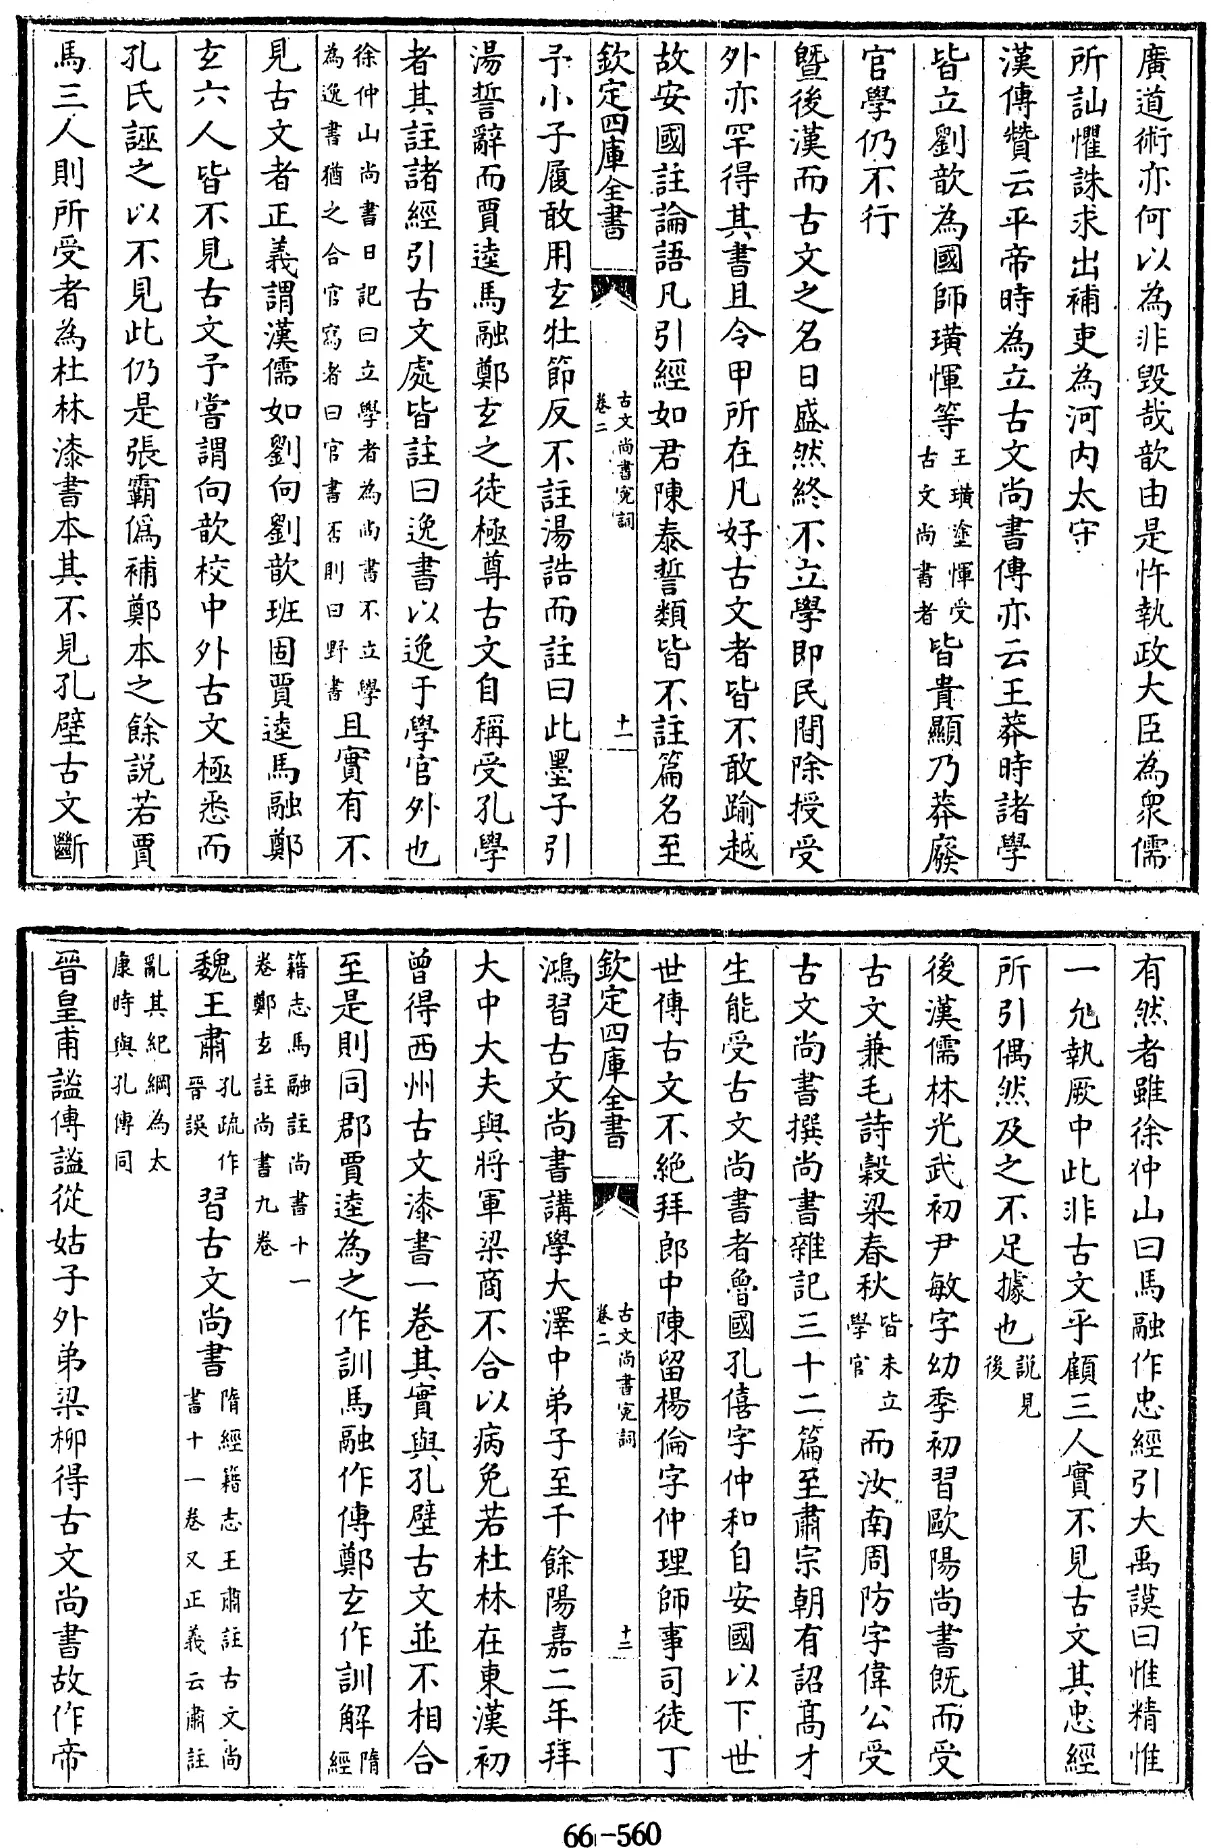 廣道術亦何以為非毀哉歆由是忤執政大臣為衆儒
所訕懼誅求出補吏為河内太守
漢傳贊云平帝時為立古文尚書傳亦云王莽時諸學
皆立劉歆為國師璜惲等王璜塗惲受古文尚書者皆貴顯乃莽廢
官學仍不行
曁後漢而古文之名日盛然終不立學即民間除授受
外亦罕得其書且令甲所在凡好古文者皆不敢踰越
故安國註論語凡引經如君陳泰誓類皆不註篇名至
欽定四庫全書
古文尚書寃詞
卷二
十一
予小子履敢用玄牡節反不註湯誥而註曰此墨子引
湯誓辭而賈逵馬融鄭玄之徒極尊古文自稱受孔學
者其註諸經引古文處皆註曰逸書以逸于學官外也
徐仲山尚書日記曰立學者為尚書不立學為逸書猶之合官寫者曰官書否則曰野書且實有不
見古文者正義謂漢儒如劉向劉歆班固賈逵馬融鄭
玄六人皆不見古文予嘗謂向歆校中外古文極悉而
孔氏誣之以不見此仍是張霸僞補鄭本之餘説若賈
馬三人則所受者為杜林漆書本其不見孔壁古文斷
有然者雖徐仲山曰馬融作忠經引大禹謨曰惟精惟
一允執厥中此非古文乎顧三人實不見古文其忠經
所引偶然及之不足據也説見後
後漢儒林光武初尹敏字幼季初習歐陽尚書既而受
古文兼毛詩穀梁春秋皆未立學官而汝南周防字偉公受
古文尚書撰尚書雜記三十二篇至肅宗朝有詔高才
生能受古文尚書者魯國孔僖字仲和自安國以下世
世傳古文不絶拜郎中陳留楊倫字仲理師事司徒丁
欽定四庫全書
古文尚書寃詞
卷二
十二
鴻習古文尚書講學大澤中弟子至千餘陽嘉二年拜
大中大夫與將軍梁商不合以病免若杜林在東漢初
曾得西州古文漆書一卷其實與孔壁古文並不相合
至是則同郡賈逵為之作訓馬融作傳鄭玄作訓解隋經
籍志馬融註尚書十一卷鄭玄註尚書九卷
魏王肅孔疏作晉誤習古文尚書隋經籍志王肅註古文尚書十一卷又正義云肅註
亂其紀綱為太康時與孔傳同
晉皇甫謐傳謐從姑子外弟梁柳得古文尚書故作帝
66-560